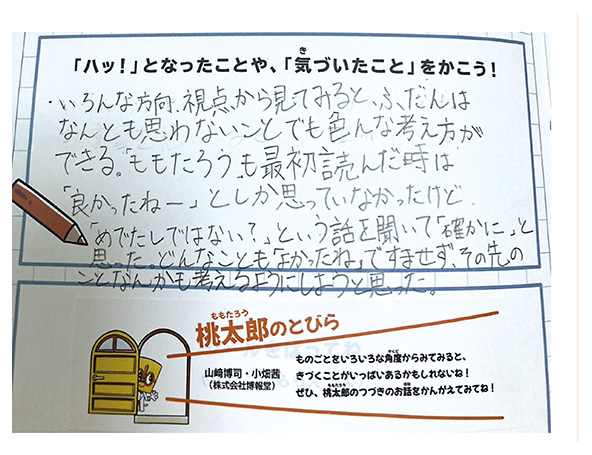 「ハッ！」となったことや、「気づいたこと」をかこう！
・いろんな方向、視点から見てみると、ふだんは
なんとも思わないことでも色んな考え方が
できる。「ももたろう」も最初読んだ時は
「良かったねー」としか思っていなかったけど
「めでたしではない？」という話を聞いて「確かに」と
思った。どんなことも「よかったね」ですませず、その先の
ことなんかも考えるようにしようと思った。
桃太郎のとびら
山﨑博司・小畑茜
（株式会社博報堂）
ものごとをいろいろな角度からみてみると、
きづくことがいっぱいあるかもしれないね！
ぜひ、桃太郎のつづきのお話をかんがえてみてね！